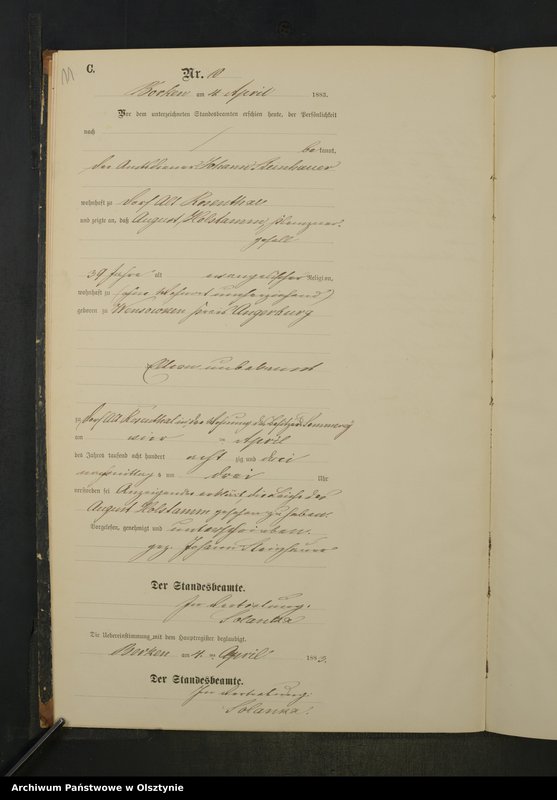 C.
Nr. 10
Borken am 4. April 1883.
Vor dem unterzeichneten Standesbeamten erschien heute, der Persönlichkeit
nach
be kannt,
der Amtsdiener Johann Steinhauer
wohnhaft zu Dorf Alt Rosenthal
und zeigte an, daß August Kolstamm, Klempner-
gesell
39 Jahre alt evangelischer Religion,
wohnhaft zu (ohne Wohnort umherziehend)
geboren zu Wensowken Kreis Angerburg
Eltern unbekannt
zu Dorf Alt Rosenthal in der Wohnung des Besitzers
am vier ten April
des Jahres tausend acht hundert acht zig und drei
nachmittags um drei Uhr
verstorben sei Anzeigender erklärt die Leiche des
August Kolstamm gesehen zu haben.
Vorgelesen, genehmigt und unterschrieben.
gez. Johann Steinhauer
Der Standesbeamte.
In Vertretung.
Solanka
Die Uebereinstimmung mit dem Hauptregister beglaubigt.
Borken am 4. ten April 1883.
Der Standesbeamte.
In Vertretung.
Solanka.
Archiwum Państwowe w Olsztynie